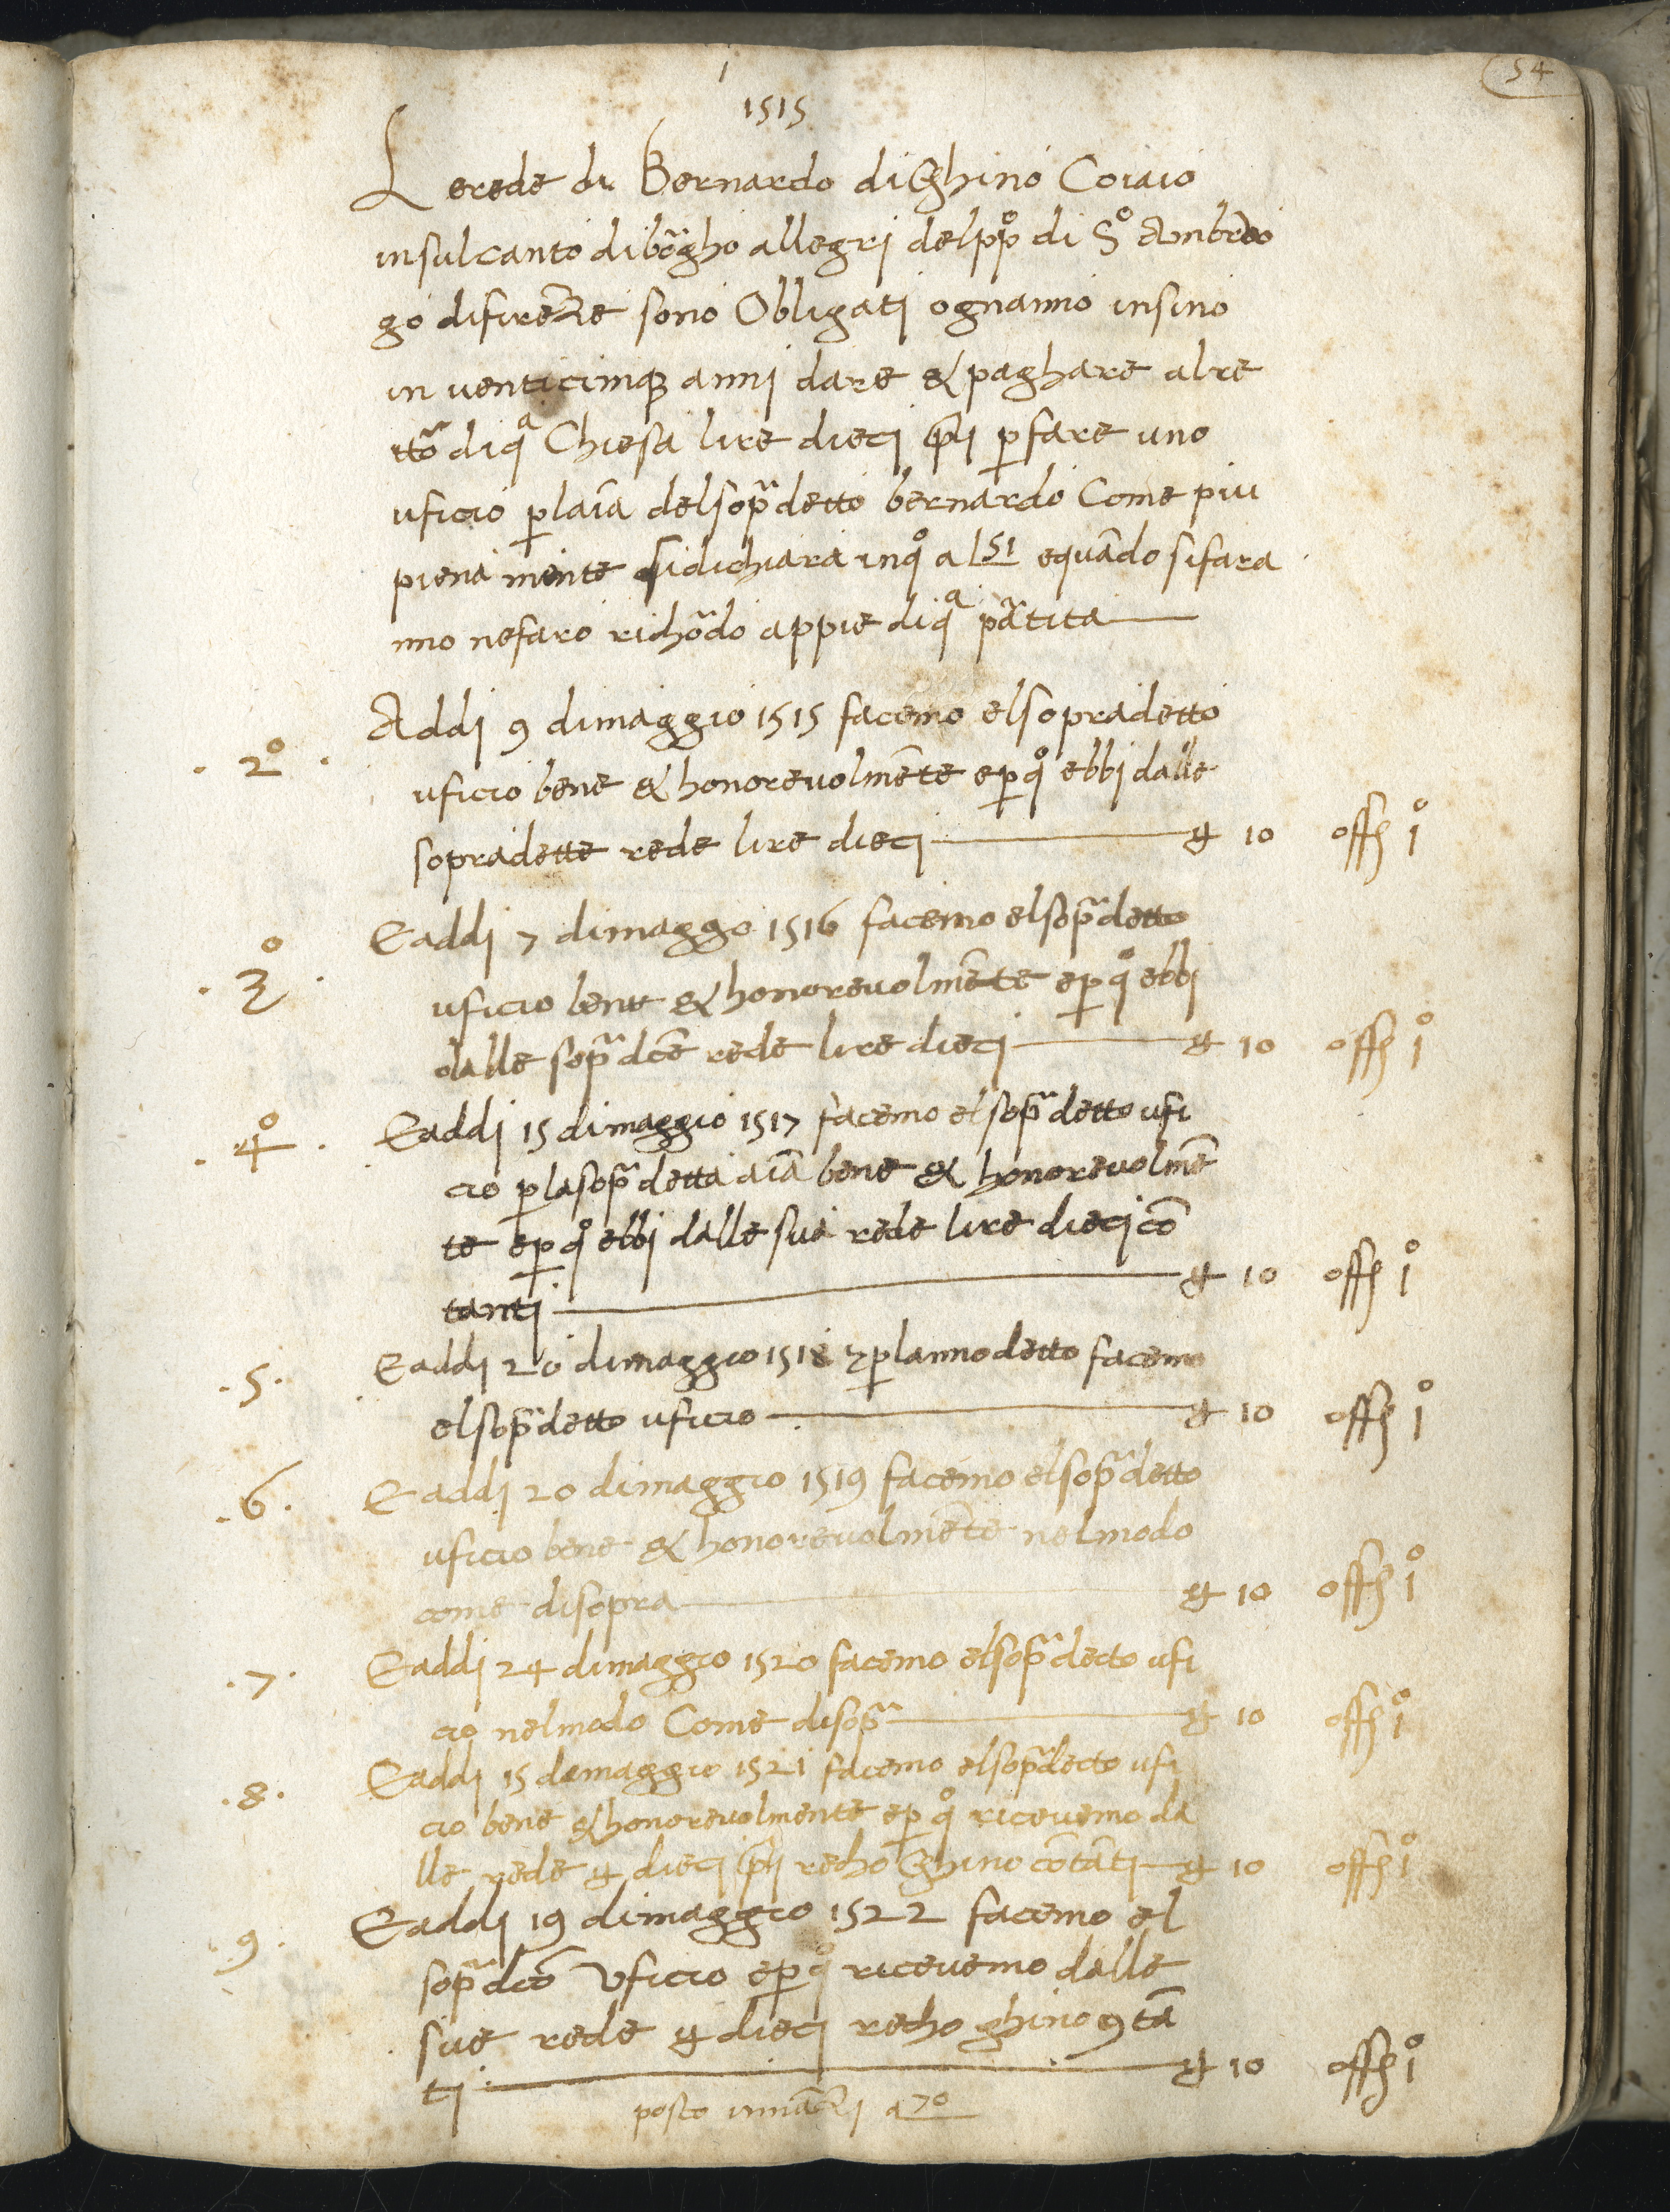 54
1515
Lerede di Bernardo di Ghino Coiaio
in sul canto di borgho allegri del ppo di So Ambruo
go di firenze sono Obligati ognanno insino
in venticinque anni dare & paghare al re
ttor di qa Chiesa lire dieci pli p fare uno
uficio p laīa del sopra detto bernardo Come piu
piena mente si dichiara in qo a l 51 e quādo si fara
nno ne faro richōdo appie di qa p̄tita
Addi 9 di maggio 1515 facemo el sopradetto
2o
uficio bene & honorevolmēte e p qo ebbi dalle
sopradette rede lire dieci — ₶ 10 offo 1o
E addi 7 di maggo 1516 facemo el sop̄detto
3o
uficio bene & honorevolmēte e p qo ebbi
dalle sop̄ dc̄e rede lire dieci — ₶ 10 offo 1o
E addi 15 di maggio 1517 facemo el sop̄ detto ufi
4o
cio p la sop̄ detta aīa bene & honorevolmē
te e p qo ebbi dalle sua rede lire dieci cō
tanti — ₶ 10 offo 1o
E addi 20 di maggio 1518 & p lanno detto facemo
.5.
el sop̄detto uficio — ₶ 10 offo 1o
E addi 20 di maggio 1519 facemo el sop̄detto
.6.
uficio bene & honorevolmēte nel modo
come di sopra — ₶ 10 offo 1o
E addi 24 di maggio 1520 facemo el sop̄decto ufi
.7.
cio nel modo Come di sop̄ — ₶ 10 offo 1o
E addi 15 de maggio 1521 facemo el sop̄decto ufi
.8.
cio bene & honorevolmente e p qo ricevemo da
lle rede ₶ dieci pli recho Ghino cōtāti — ₶ 10 offo 1o
E addi 19 di maggio 1522 facemo el
.9.
sop̄dcō Uficio e p qo ricevemo dalle
sue rede ₶ dieci recho ghino 9tā
ti — ₶ 10 offo 1o
posto innāzi a 70